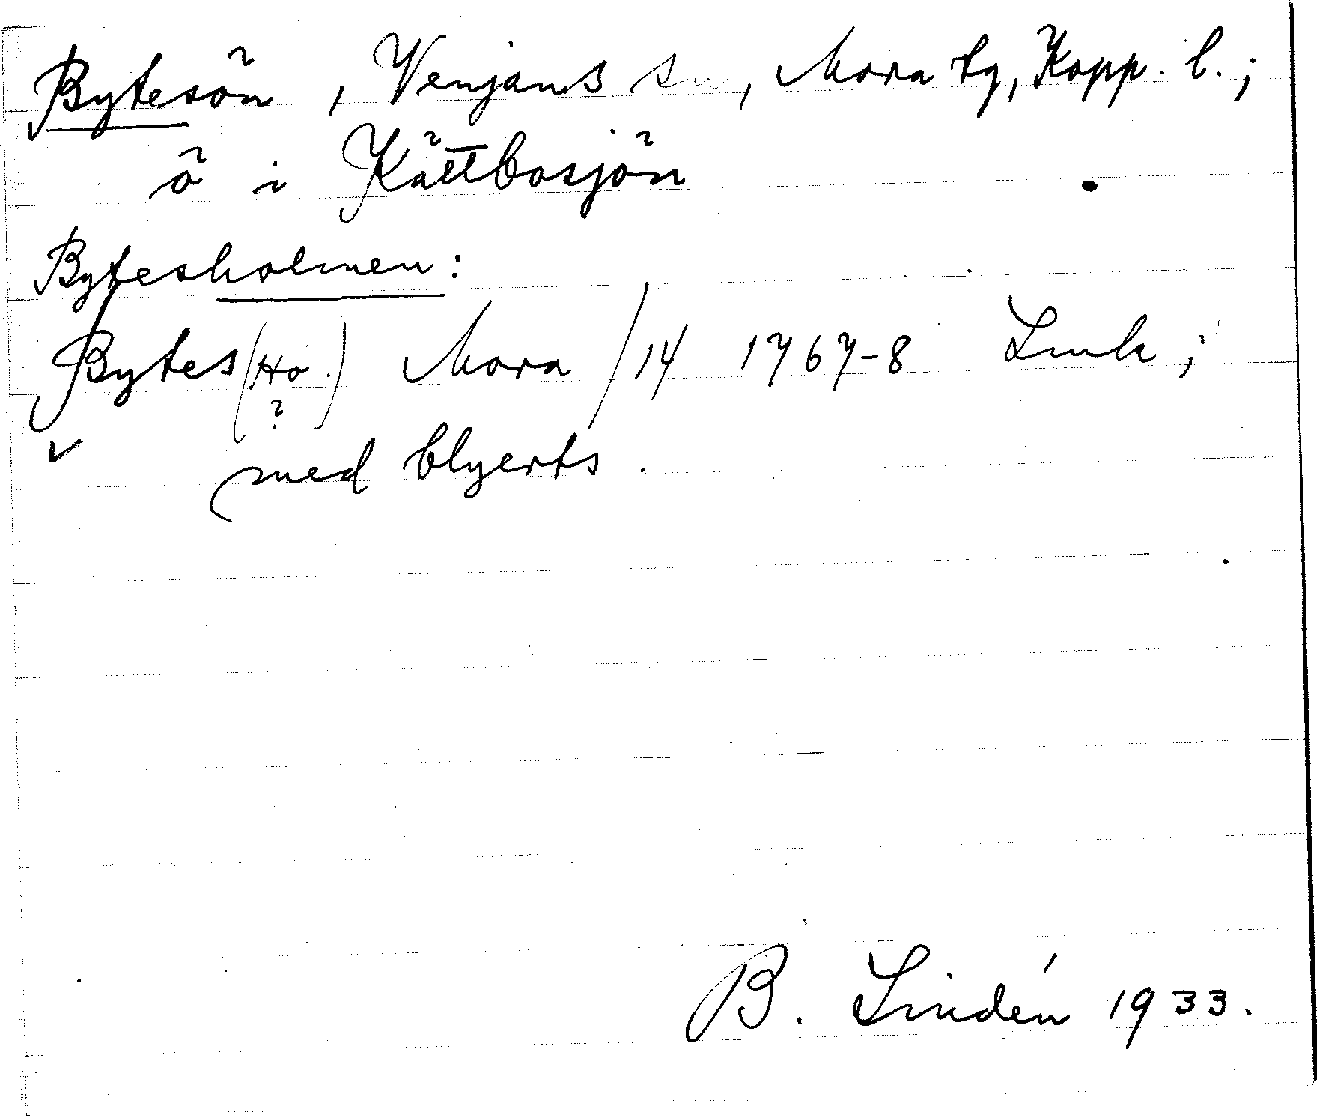 Bytesön, Venjans sn, Mora tg, Kopp. l.;
ö i Kättbosjön
Bytesholmen:
Bytes (Ho.) Mora /14 1767-8 Lmk;
?
med blyerts.
B. Lindén 1933.